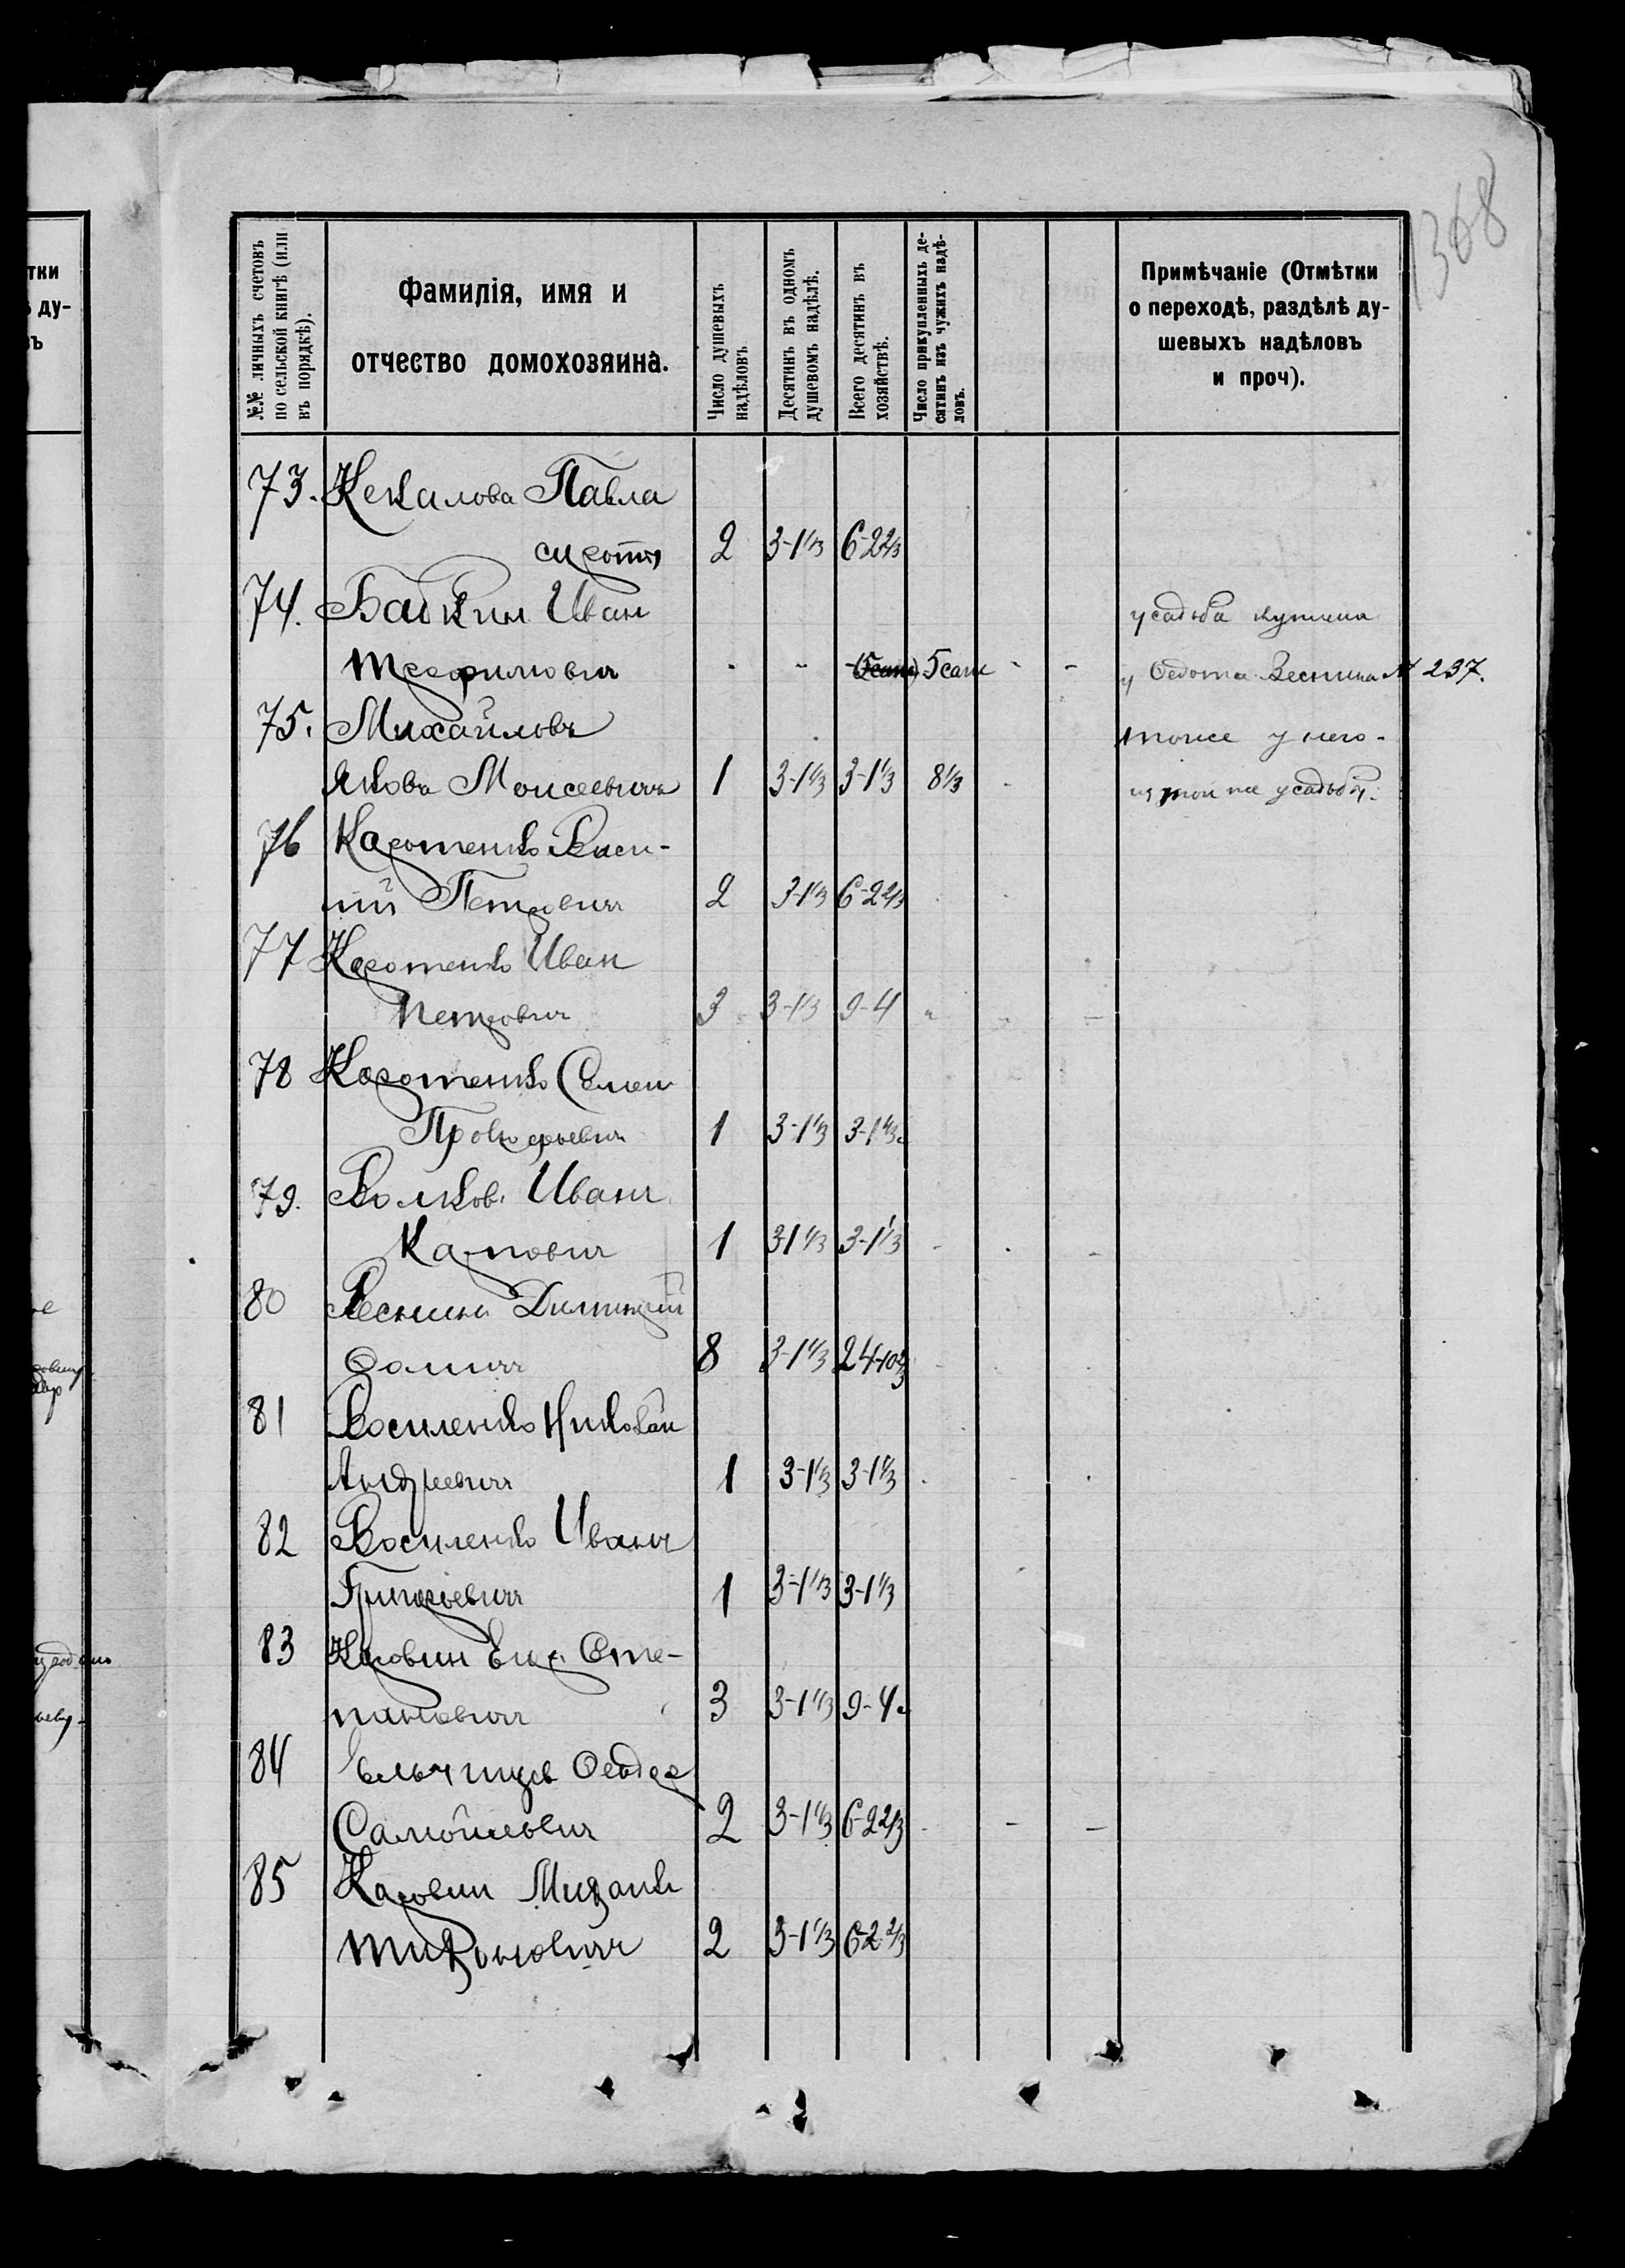 1368
№№ личныхъ счетовъ
по сельской книгѣ (или
въ порядкѣ).
Фамилія, имя и
отчество домохозяина.
Число душевыхъ
надѣловъ.
Десятинъ въ одномъ
душевомъ надѣлѣ.
Всего десятинъ въ
хозяйствѣ.
Число прикупленныхъ де-
сятинъ изъ чужихъ надѣ-
ловъ.
Примѣчаніе (Отмѣтки
о переходѣ, раздѣлѣ ду-
шевыхъ надѣловъ
и проч).
тки
ду-
ъ
73. Павла
сироты 2 3-1 1/3 6-2 2/3
74. Бабкин Иван усадьба куплена
Трофимович - - (5саж) 5саж - - у Федота Веснина № 237.
75. Михайловъ тоже у него -
Якова Моисеевича 1 3-1 1/3 3-1 1/3 8 1/3 - из той же усадьбы.
76 Каротенко Васи-
лий Петрович 2 3-1 1/3 6-2 2/3
77 Каротенко Иван
Петрович 3 3-1/3 9-4
78 Каротенко Семен
Прокофьевич 1 3-1 1/3 3-1 1/3
79. Волков Иванъ
Карпович 1 3-1 1/3 3-1 1/3
80 Веснин Димитрий
Фомич 8 3-1 1/3 24-10 2/3
81 Восиленко Николай
Андреевич 1 3-1 1/3 3-1 1/3
82 Восиленко Иванъ
Григорьевич 1 3-1 1/3 3-1 1/3
83 Каровин Сте-
панович 3 3-1 1/3 9-4
84 Федор
Самойлович 2 3-1 1/3 6-2 2/3 - -
85 Каровин Михаил
Тихонович 2 3-1 1/3 6-2 2/3